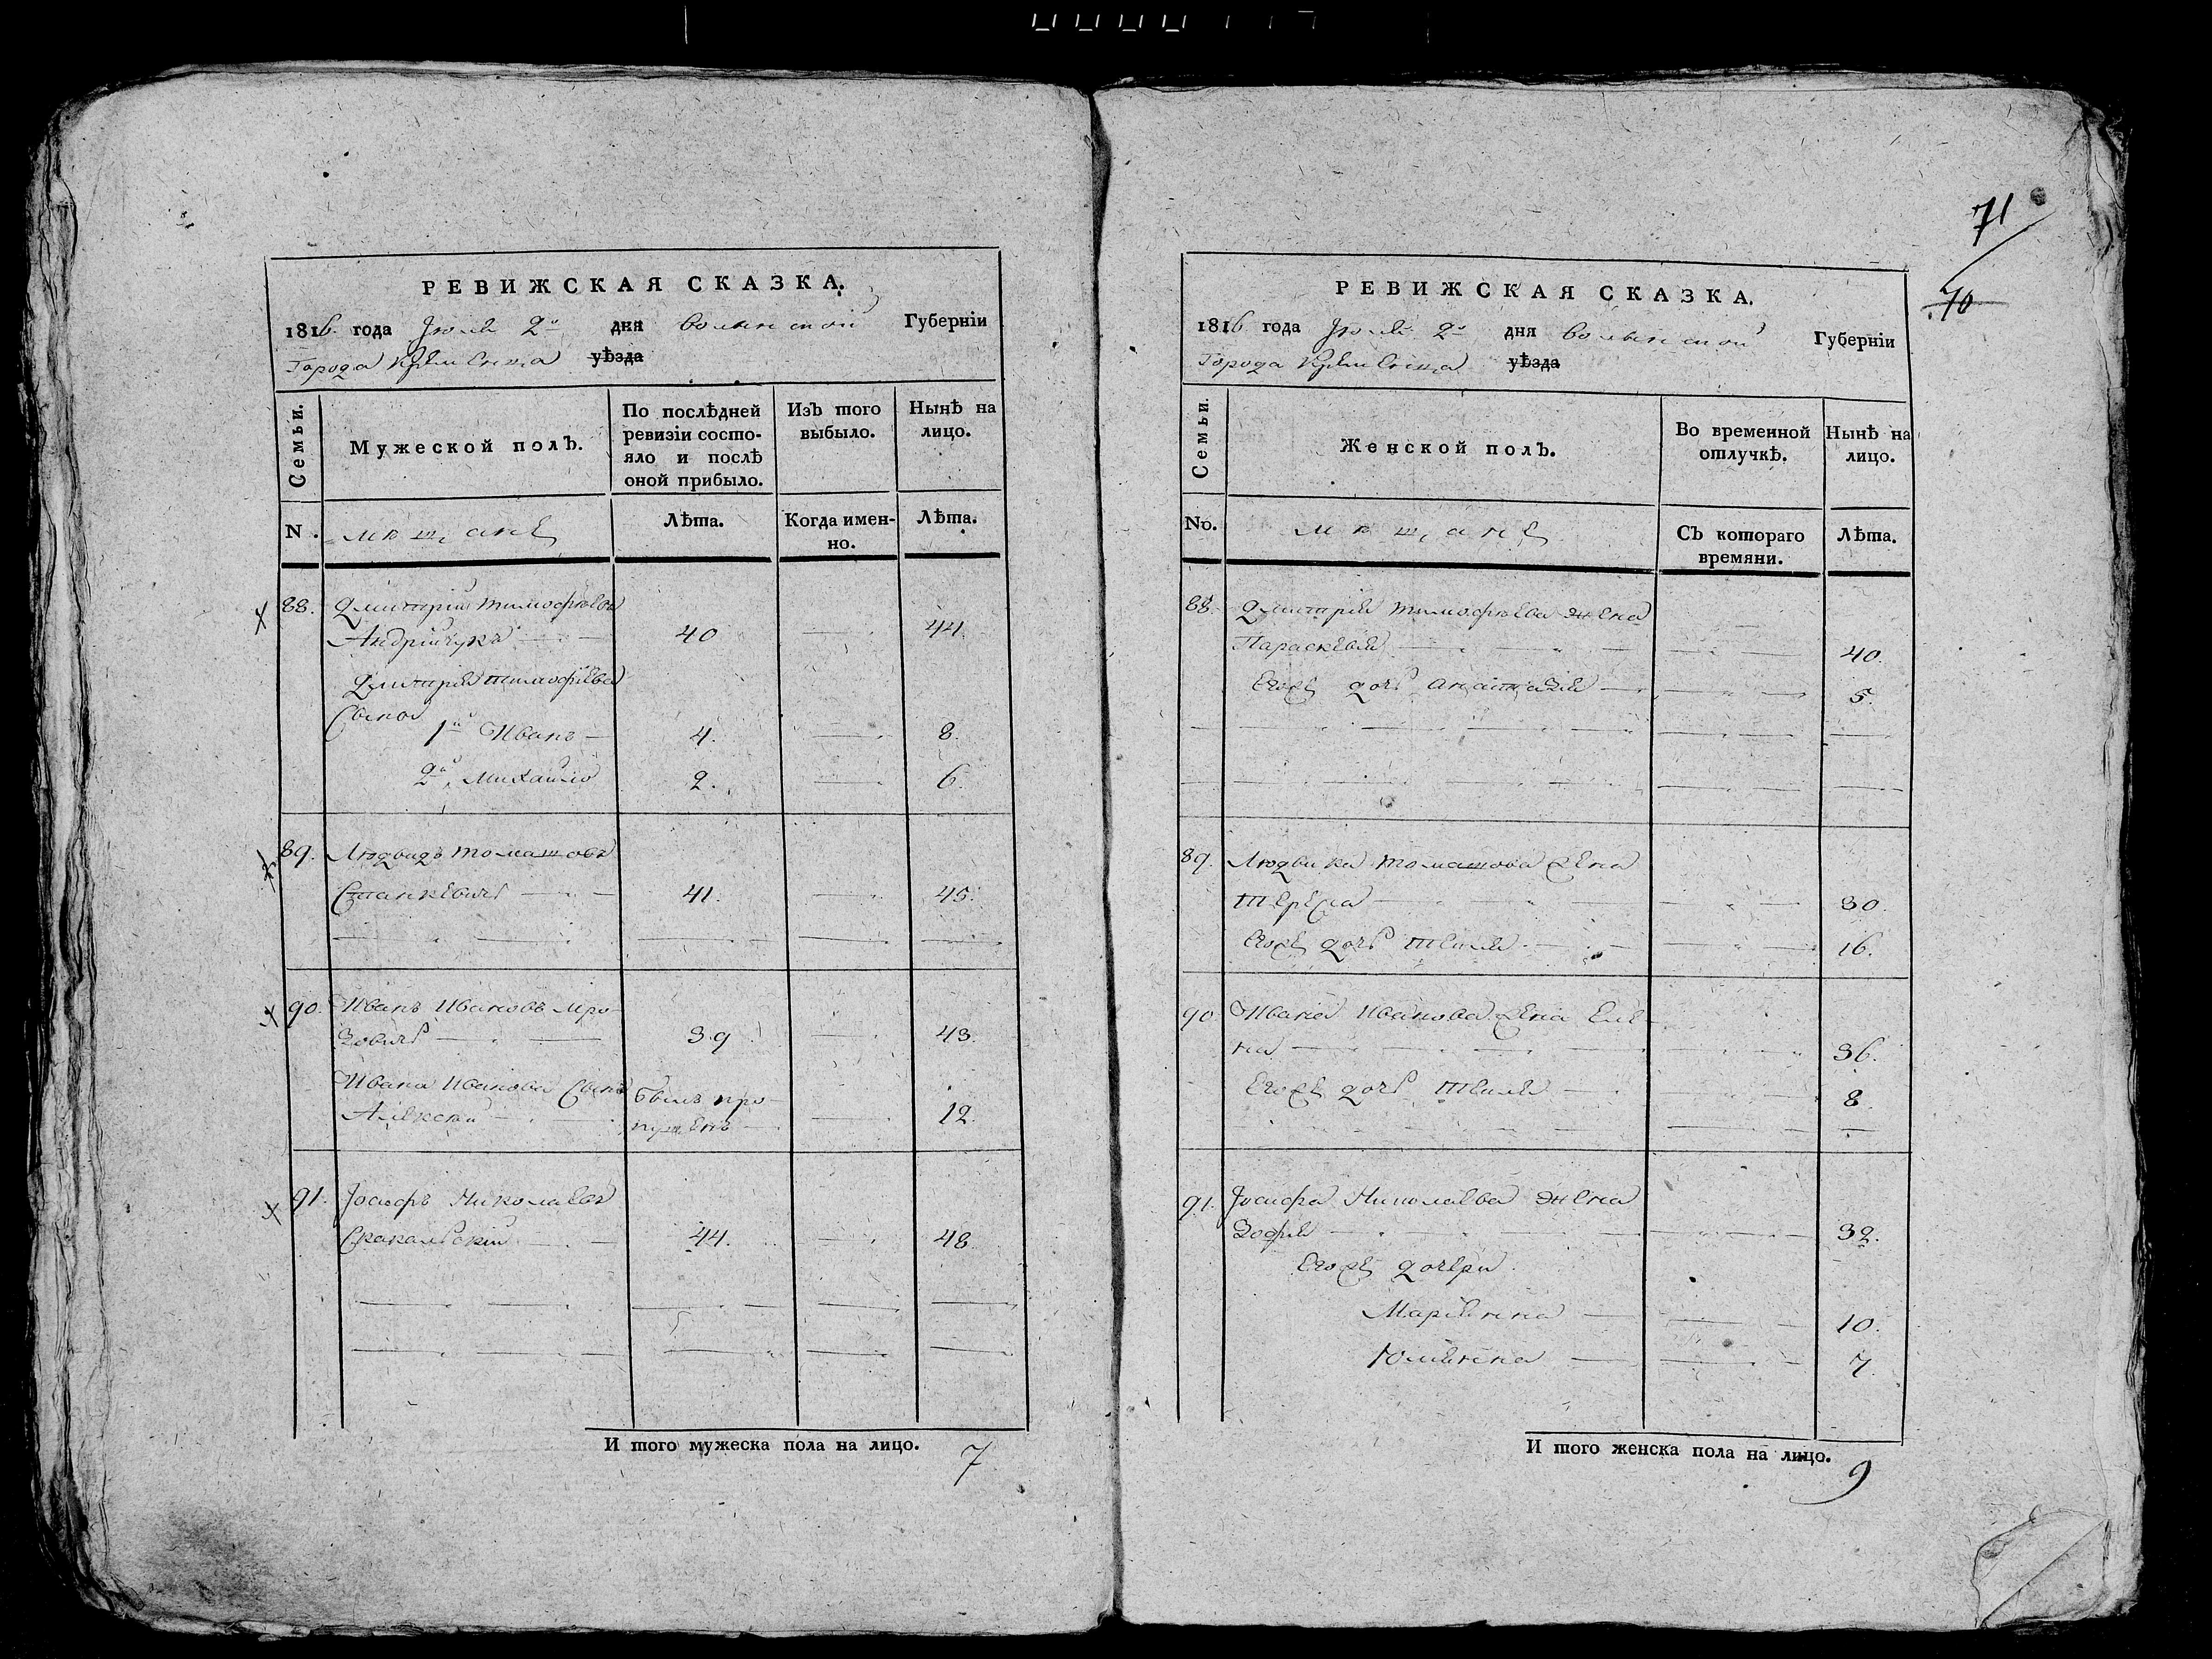 РЕВИЖСКАЯ СКАЗКА.
1816 года Июля 2го дня Волынской Губерніи
Города Кременца уѣзда
Семьи.
Мужеской полъ.
По послѣдней ревизіи состояло и послѣ оной прибыло.
Изъ того выбыло.
Нынѣ на лицо.
N.
мѣщанѣ
Лѣта.
Когда именно.
Лѣта.
88. Дмитрій Тимофѣевъ
Андрійчукъ 40 44.
Дмитрія Тимофѣева
Сыновя
1й Иванъ 4. 8.
2й Михайло 2. 6.
89. Людвигъ Томашовъ
Станкевичь 41. 45.
90. Иванъ Ивановъ Мро-
зовичь 39 43.
Ивана Иванова Сынъ былъ про-
Алексѣй пущенъ 12.
91. Іосифъ Николаевъ
Скакальскій 44. 48
И того мужеска пола на лицо. 7
71
70
РЕВИЖСКАЯ СКАЗКА.
1816 года Июля 2го дня Волынской Губерніи
Города Кременца уѣзда
Семьи.
Женской полъ.
Во временной отлучкѣ.
Нынѣ на лицо.
No.
мѣщанѣ
Съ котораго времяни.
Лѣта.
88. Дмитрія Тимофѣева жена
Параскевія 40.
Егоже дочь Анастазія 5.
89. Людвика Томашова жена
Тереса 30.
Егоже дочь Текля 16.
90. Ивана Иванова жена Еле-
на 36.
Егоже дочь Текля 8.
91. Іосифа Николаева жена
Зофія 32.
Егоже дочери
Маріянна 10.
Юліянна 7.
И того женска пола на лицо. 9